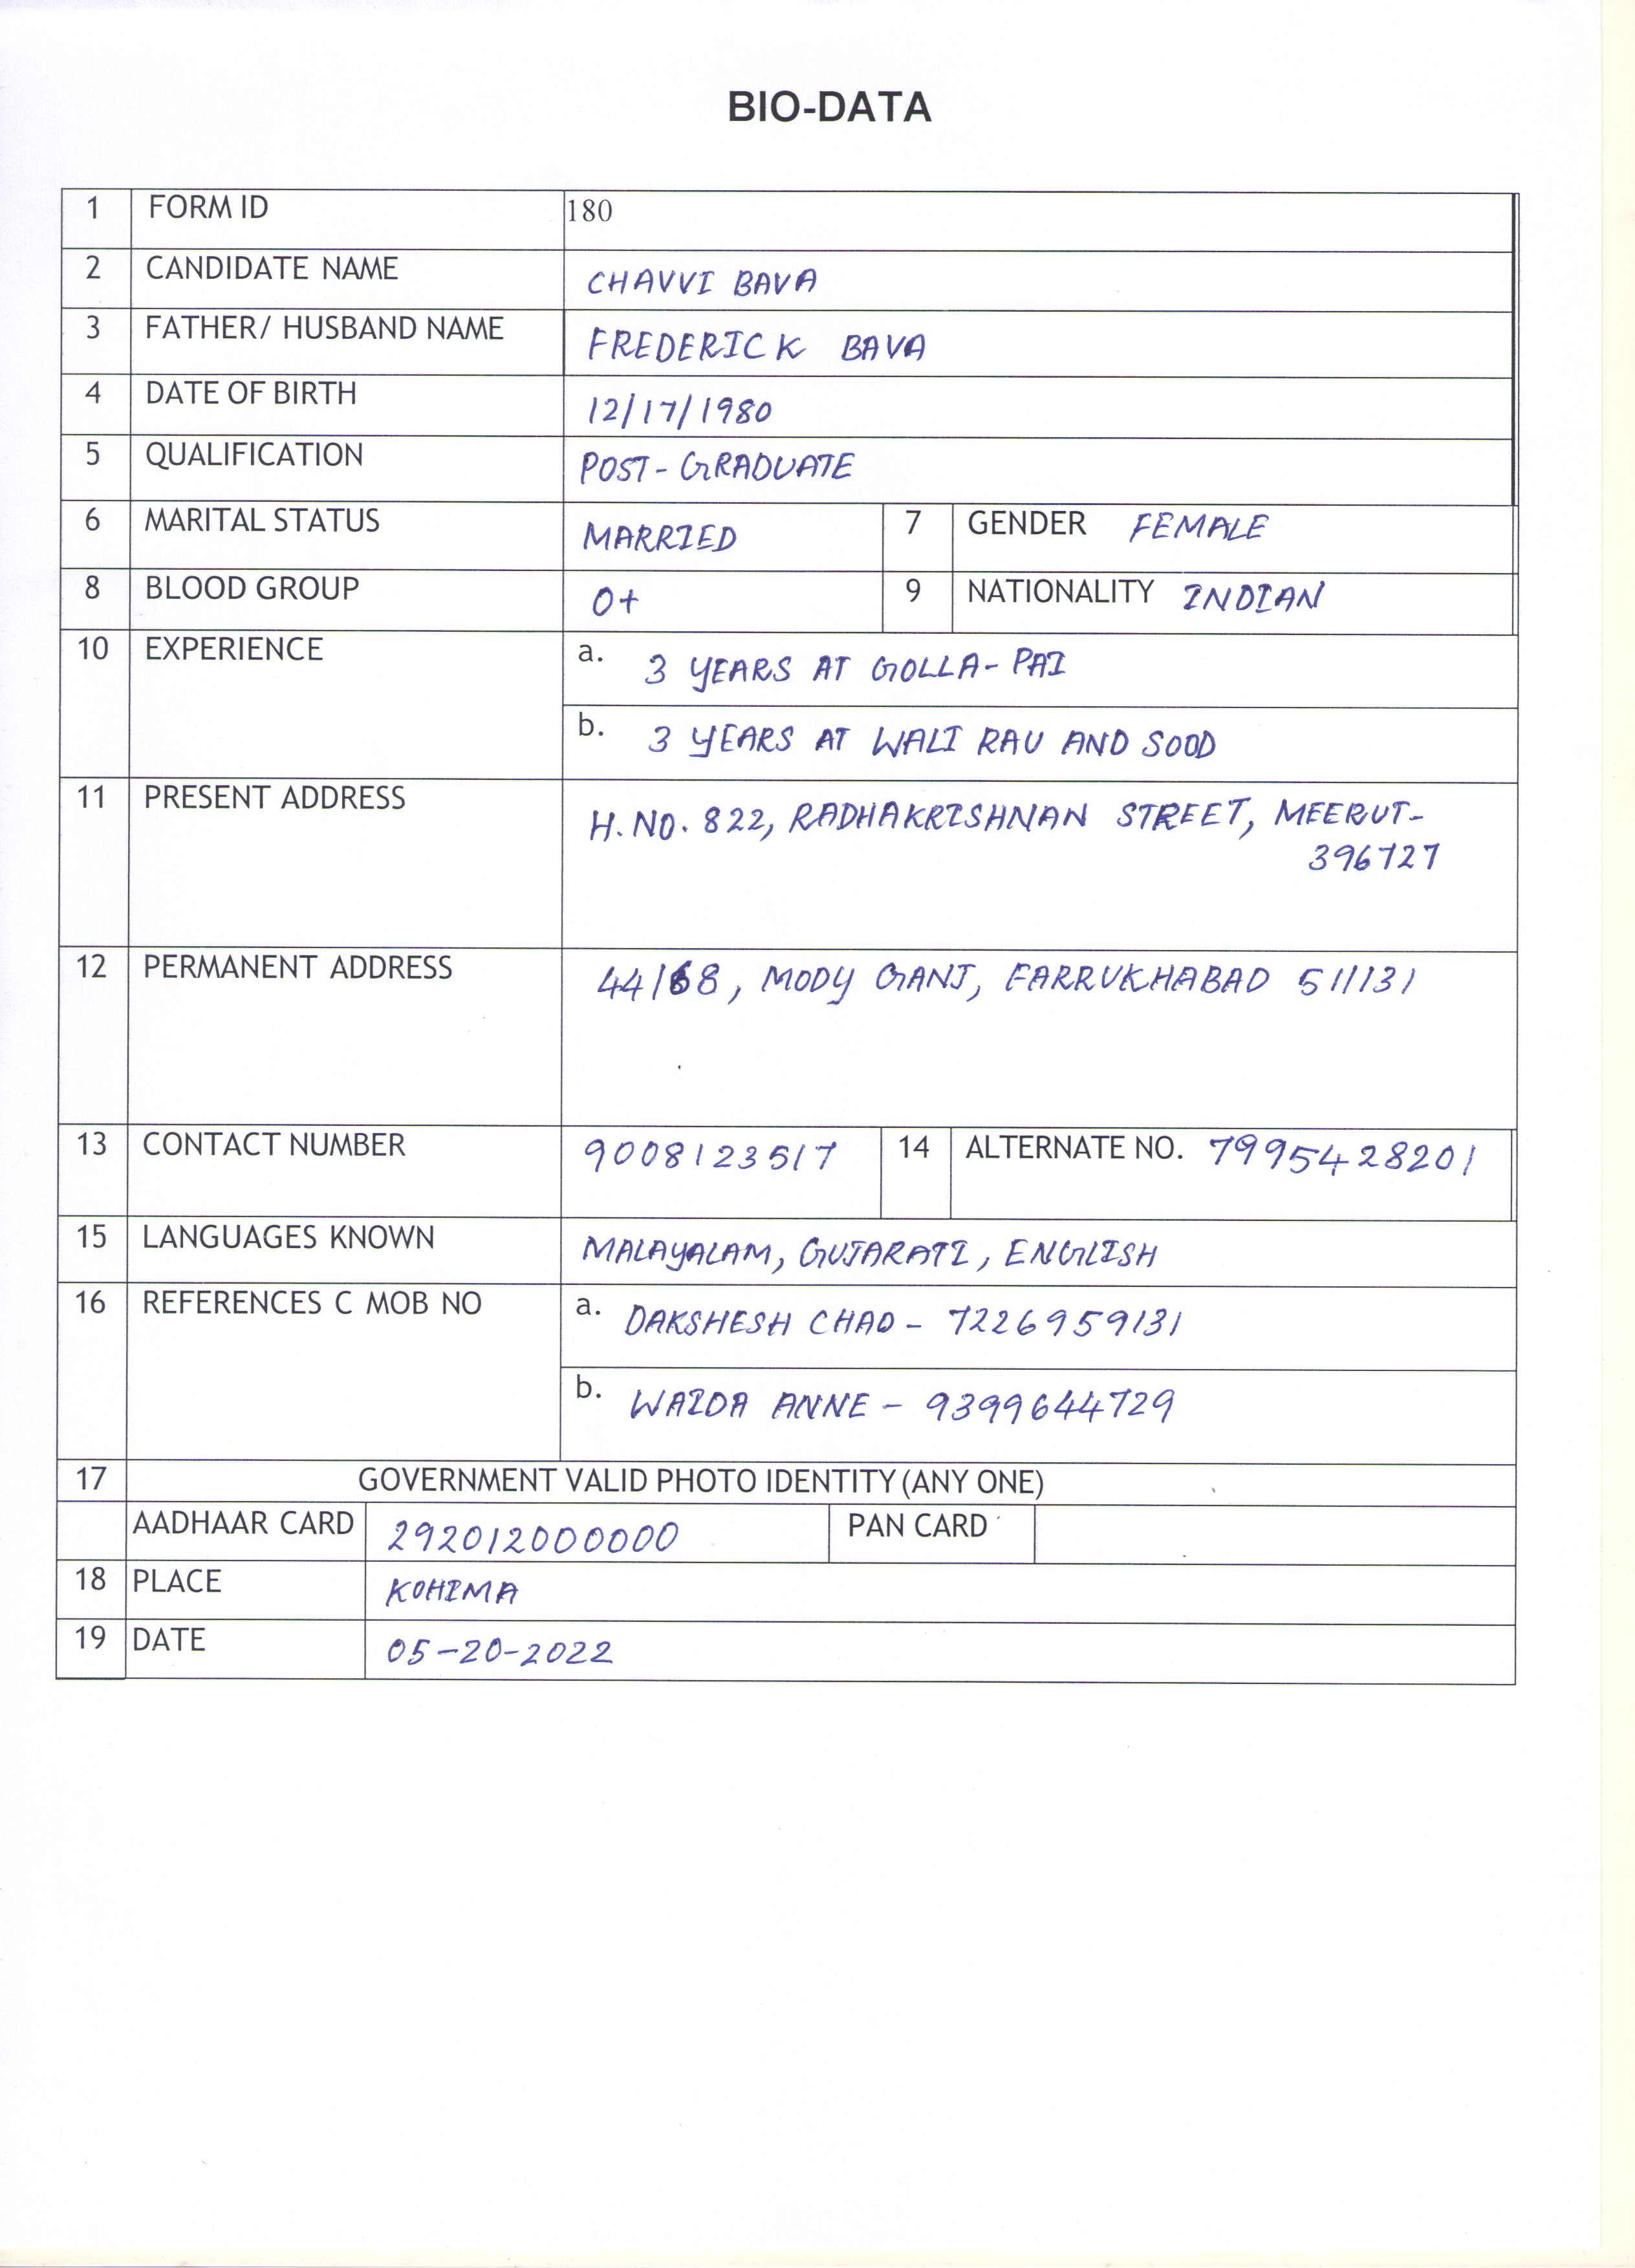 BIO-DATA
1 FORM ID 180
2 CANDIDATE NAME CHAVVI BAVA
3 FATHER/ HUSBAND NAME FREDERICK BAVA
4 DATE OF BIRTH 12/17/1980
5 QUALIFICATION POST-GRADUATE
6 MARITAL STATUS MARRIED 7 GENDER FEMALE
8 BLOOD GROUP O+ 9 NATIONALITY INDIAN
10 EXPERIENCE a. 3 YEARS AT GOLLA-PAI
b. 3 YEARS AT WALI RAU AND SOOD
11 PRESENT ADDRESS H.NO. 822, RADHAKRISHNAN STREET, MEERUT-
396727
12 PERMANENT ADDRESS 44/68, MODY GANJ, FARRUKHABAD 511131
13 CONTACT NUMBER 9008123517 14 ALTERNATE NO. 7995428201
15 LANGUAGES KNOWN MALAYALAM, GUJARATI, ENGLISH
16 REFERENCES C MOB NO a. DAKSHESH CHAD - 7226959131
b. WAIDA ANNE - 9399644729
17 GOVERNMENT VALID PHOTO IDENTITY (ANY ONE)
AADHAAR CARD 292012000000 PAN CARD
18 PLACE KOHIMA
19 DATE 05-20-2022